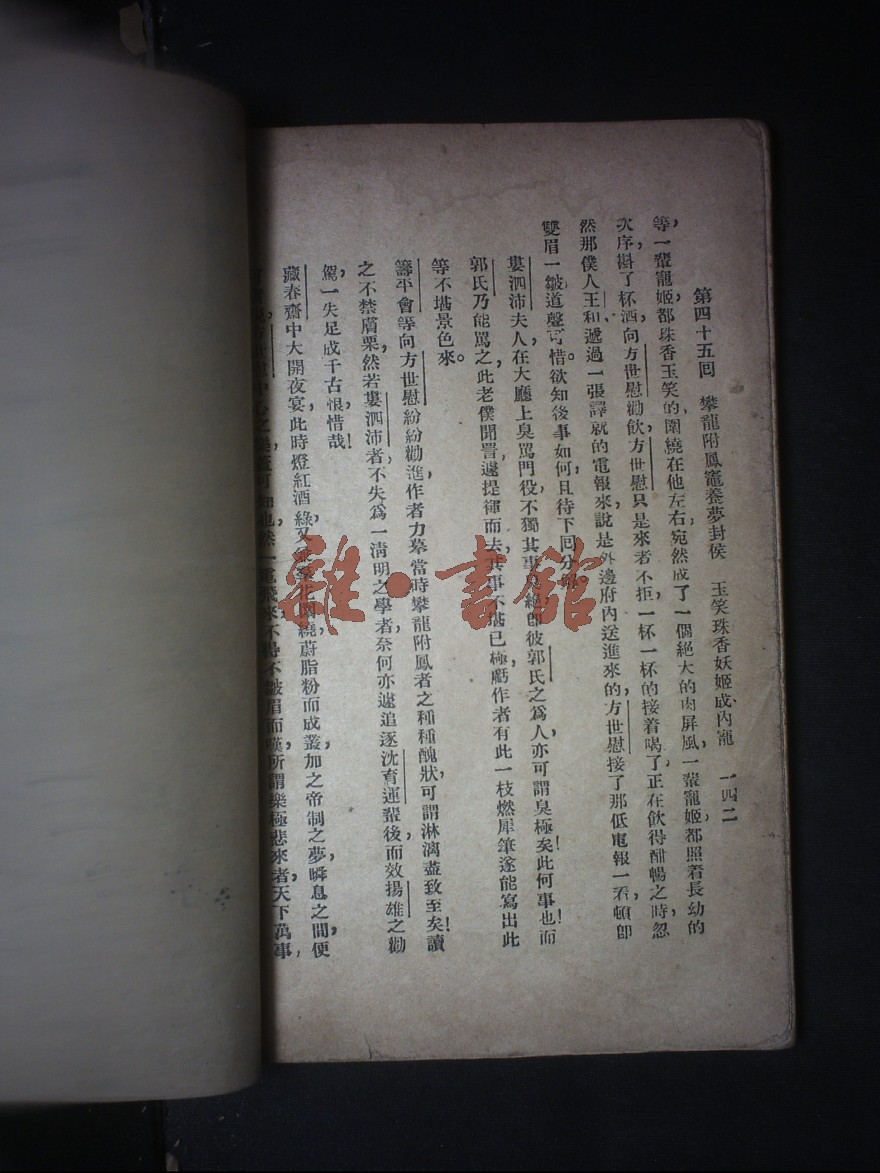 第四十五回　攀龍附鳳寵養夢封侯　玉笑珠香妖姬成內寵　一四二
等，一輩寵姬，都珠香玉笑的，圍繞在他左右，宛然成了一個絕大的肉屏風，一輩寵姬，都照着長幼的
次序，斟了杯酒，向方世慰勸飲，方世慰只是來者不拒，一杯一杯的接着喝了，正在飲得酣暢之時，忽
然那僕人王和，遞過一張譯就的電報來，說是外邊府內送進來的，方世慰接了那低電報一看，頓卽
雙眉一皺，道聲可惜，欲知後事如何，且待下回分解。
婁泗沛夫人在大廳上臭罵門役，不獨其事臭絕，卽彼郭氏之爲人，亦可謂臭極矣！此何事也，而
郭氏乃能罵之，此老僕聞詈，遽提褌而去，其事不堪已極，虧作者有此一枝燃犀筆，遂能寫出此
等不堪景色來。
籌平會等向方世慰紛紛勸進，作者力摹當時攀龍附鳳者之種種醜狀，可謂淋漓盡致至矣！讀
之不禁膚栗，然若婁泗沛者，不失爲一清明之學者，奈何亦遽追逐沈育運輩後，而效揚雄之勸
駕，一失足成千古恨，惜哉！
藏春齋中大開夜宴，此時燈紅酒綠，又羣花圍繞，蔚脂粉而成叢，加之帝制之夢，瞬息之間，便
一電飛來，不得不皺眉而嘆，所謂樂極悲來者，天下萬事，
雜·書館